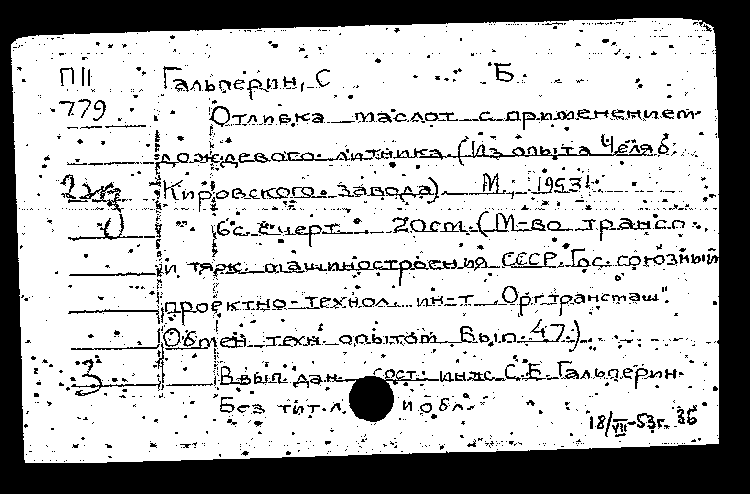 П11 Гальперин, С Б.
779 Отливка маслот с применением
дождевого литника (Из опыта Челяб.
2 экз Кировского завода). М., 1953.
6с. с черт. 20см. (М-во трансп.
и тяж. машиностроения СССР. Гос. союзный
проектно-технол. ин-т "Оргтрансмаш".
Обмен техн. опытом Вып. 47.)
3 В вып. дан. сост.: инж. С.Б. Гальперин.
Без тит. л. и обл.
18/VII-53г. 36